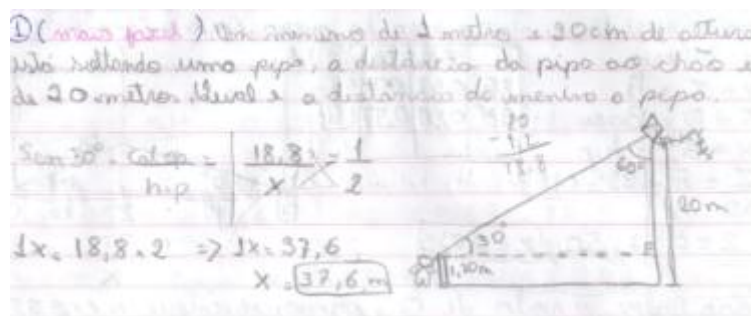 ① (mais fácil) Um menino de 1 metro e 20cm de altura
está soltando uma pipa, a distância da pipa ao chão é
de 20 metros. Qual é a distância do menino a pipa.
Sen 30° = cat.op = 18,8 = 1
hip x 2
20
- 1,2
18,8
60°
20m
1x = 18,8 . 2 => 1x = 37,6
30°
x = 37,6 m
1,20m